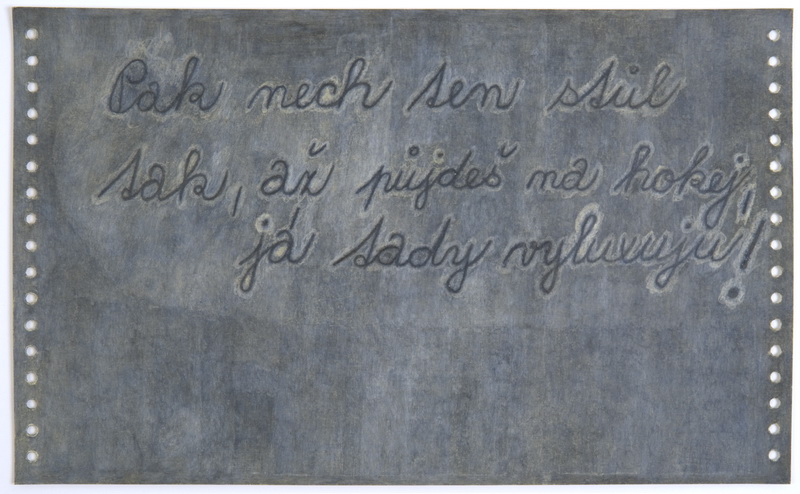 Pak nech ten stůl
tak, až půjdeš na hokej,
já tady vyluxuju!